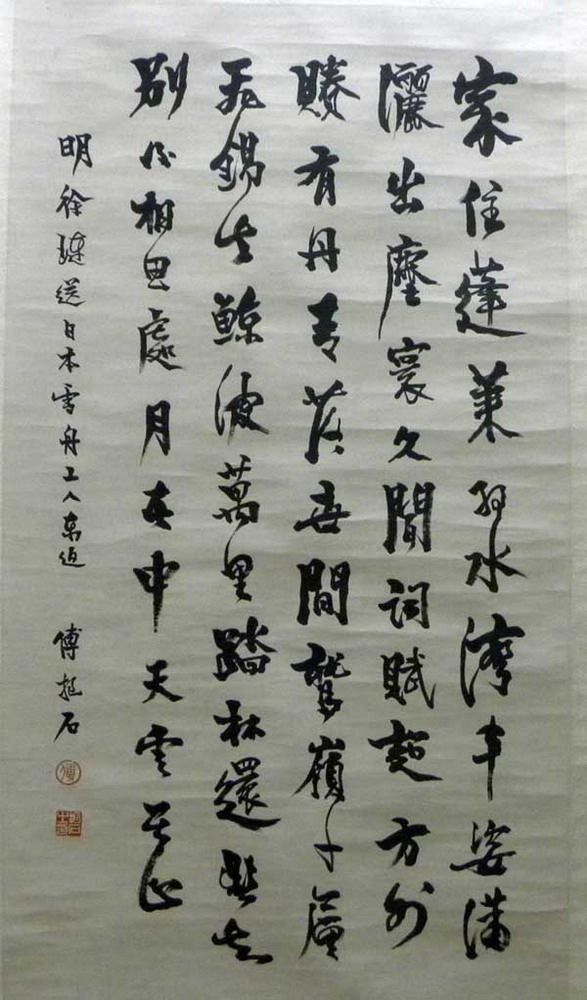 家住蓬萊弱水灣丰姿瀟
灑出塵寰久聞詞賦超方外
賸有丹青落世間鷲嶺千層
飛錫去鯨波萬里踏杯還懸知
別後相思處月在中天雲在山
明徐璉送日本雪舟上人東返 傅抱石
傅